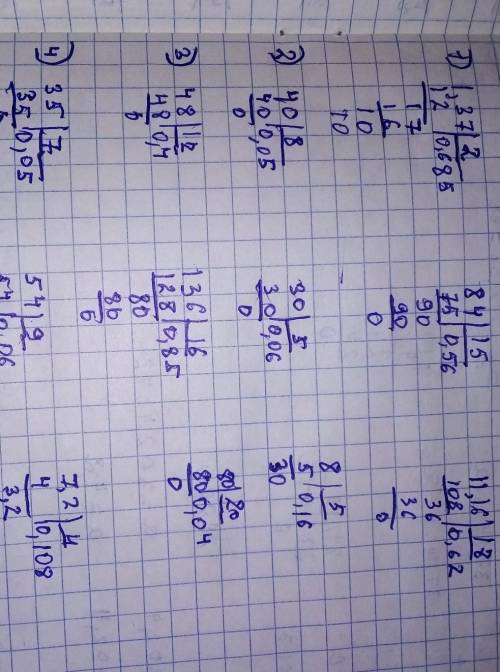 1) 1,37 | 2
1,2 | 0,685
17
16
10
10
84 | 15
75 | 0,56
90
90
0
11,16 | 18
108 | 0,62
36
36
0
2) 40 | 8
40 | 0,05
0
30 | 5
30 | 0,06
0
8 | 5
5 | 0,16
30
3) 48 | 12
48 | 0,4
136 | 16
128 | 0,85
80
80
0
80 | 20
80 | 0,04
0
4) 35 | 7
35 | 0,05
54 | 9
54 | 0,06
7,2 | 4
4 | 0,108
3,2